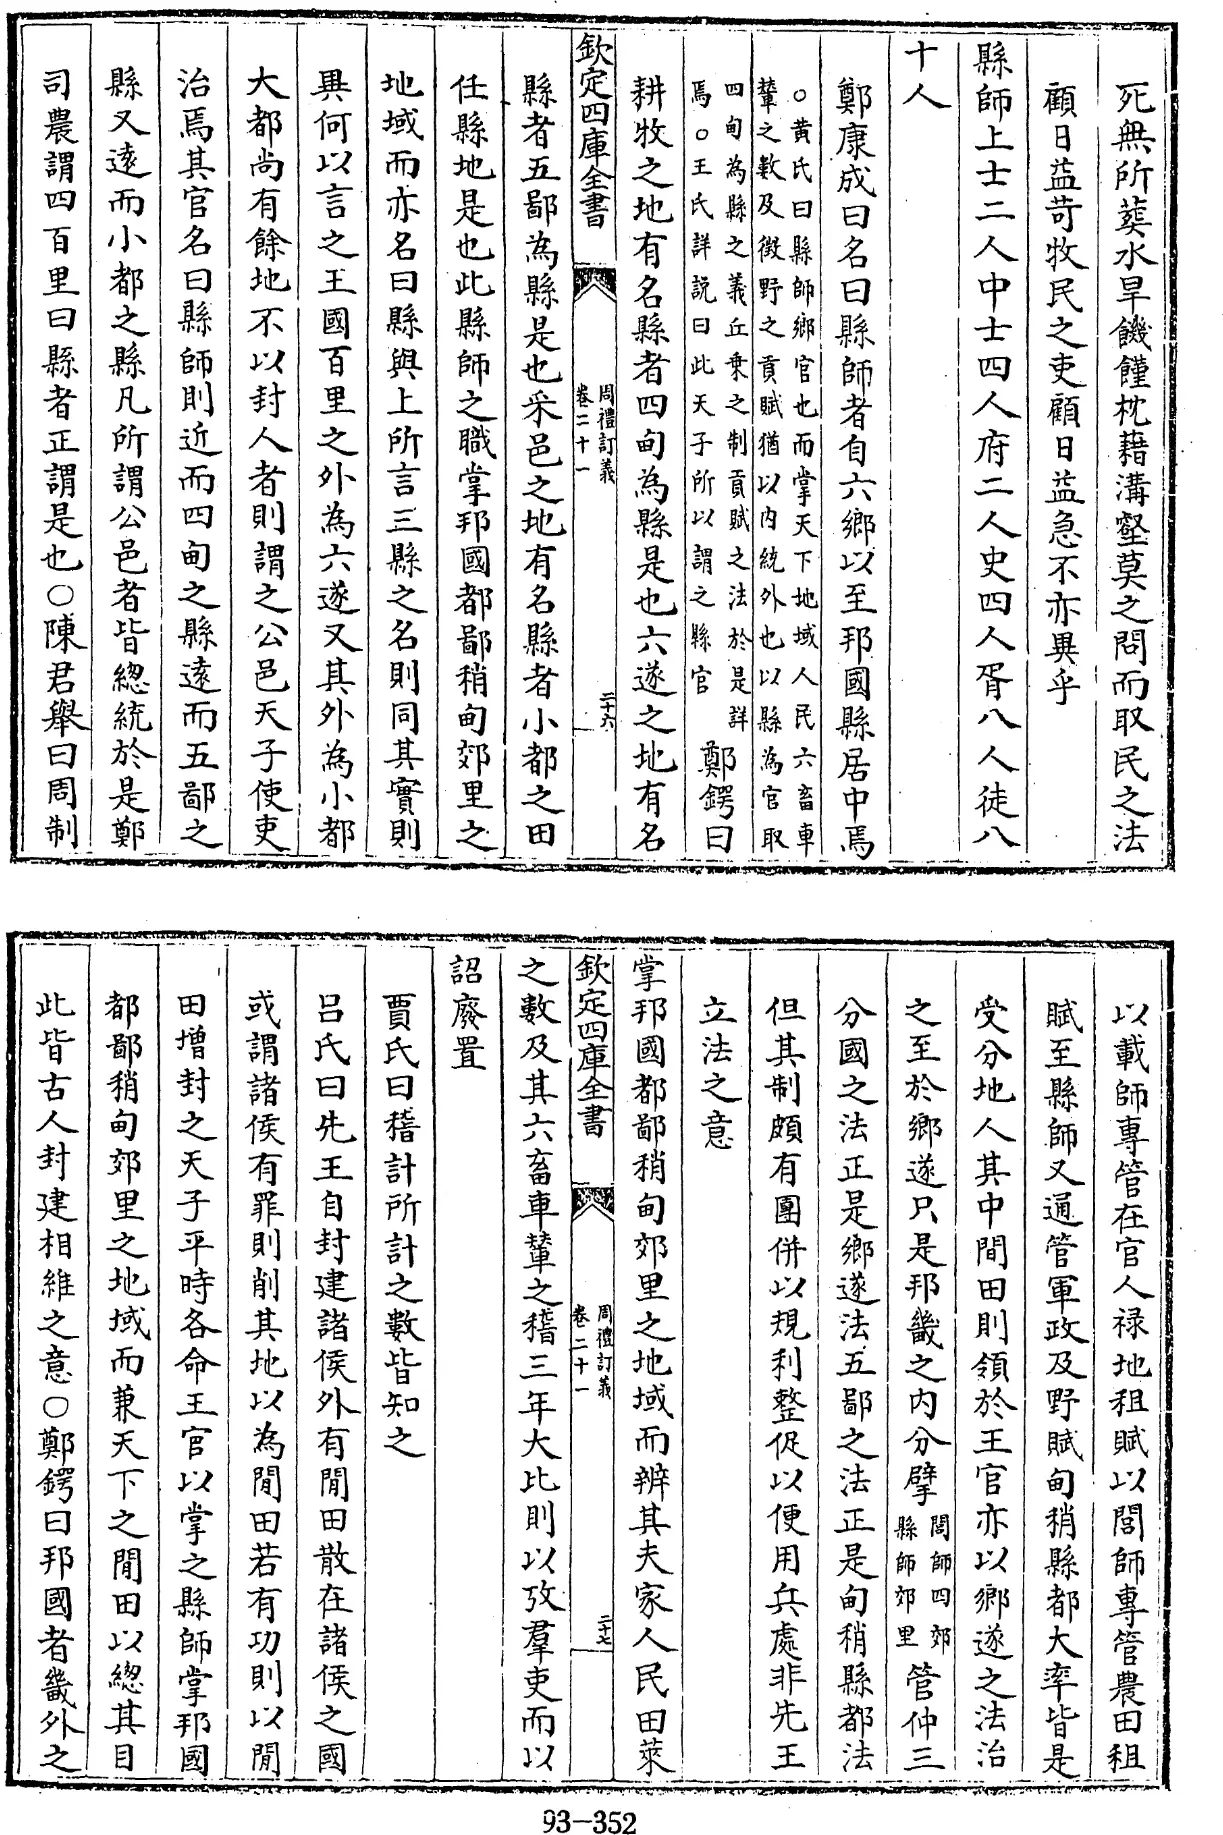 死無所葬水旱饑饉枕藉溝壑莫之問而取民之法
顧日益苛牧民之吏顧日益急不亦異乎
縣師上士二人中士四人府二人史四人胥八人徒八
十人
鄭康成曰名曰縣師者自六鄉以至邦國縣居中焉
○黃氏曰縣師鄉官也而掌天下地域人民六畜車
輦之數及徵野之貢賦猶以内統外也以縣為官取
四甸為縣之義丘乗之制貢賦之法於是詳
焉○王氏詳説曰此天子所以謂之縣官
鄭鍔曰
耕牧之地有名縣者四甸為縣是也六遂之地有名
欽定四庫全書
周禮訂義
卷二十一
二十六
縣者五鄙為縣是也采邑之地有名縣者小都之田
任縣地是也此縣師之職掌邦國都鄙稍甸郊里之
地域而亦名曰縣與上所言三縣之名則同其實則
異何以言之王國百里之外為六遂又其外為小都
大都尚有餘地不以封人者則謂之公邑天子使吏
治焉其官名曰縣師則近而四甸之縣遠而五鄙之
縣又遠而小都之縣凡所謂公邑者皆總統於是鄭
司農謂四百里曰縣者正謂是也○陳君舉曰周制
以載師專管在官人禄地租賦以閭師專管農田租
賦至縣師又通管軍政及野賦甸稍縣都大率皆是
受分地人其中間田則領於王官亦以鄉遂之法治
之至於鄉遂只是邦畿之内分擘
閭師四郊
縣師郊里
管仲三
分國之法正是鄉遂法五鄙之法正是甸稍縣都法
但其制頗有團併以規利整促以便用兵處非先王
立法之意
掌邦國都鄙稍甸郊里之地域而辨其夫家人民田萊
欽定四庫全書
周禮訂義
卷二十一
二十七
之數及其六畜車輦之稽三年大比則以攷羣吏而以
詔廢置
賈氏曰稽計所計之數皆知之
吕氏曰先王自封建諸侯外有閒田散在諸侯之國
或謂諸侯有罪則削其地以為閒田若有功則以閒
田增封之天子平時各命王官以掌之縣師掌邦國
都鄙稍甸郊里之地域而兼天下之閒田以總其目
此皆古人封建相維之意○鄭鍔曰邦國者畿外之
93-352